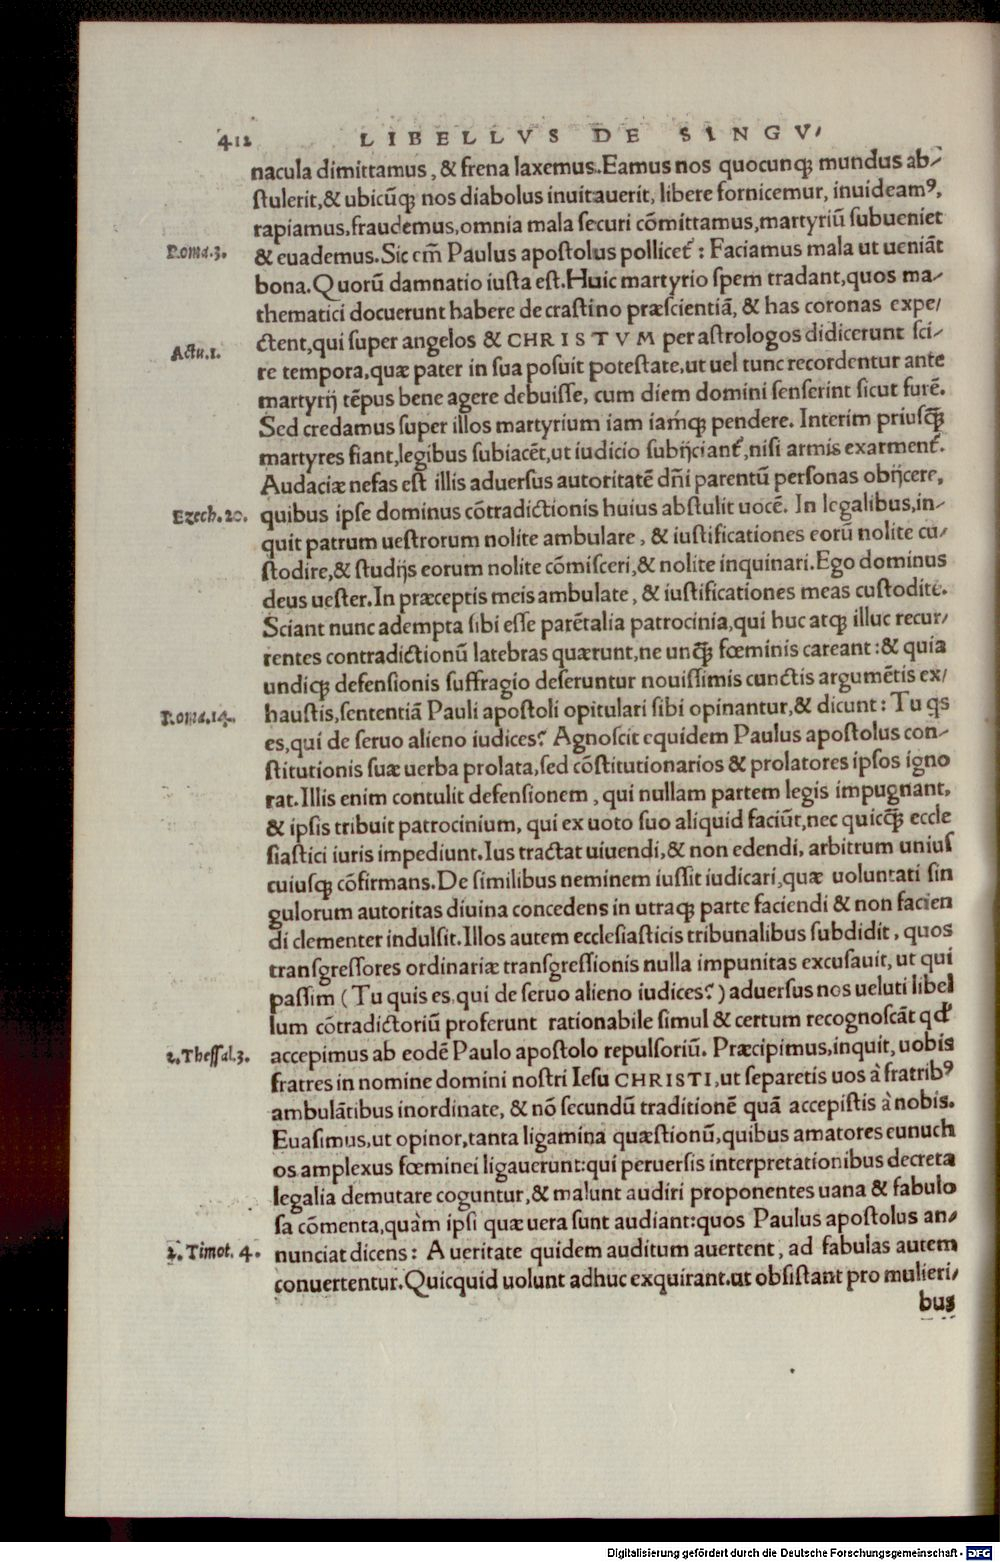 412 LIBELLVS DE SINGV/
nacula dimittamus, & frena laxemus. Eamus nos quocunqꝫ mundus ab/
ſtulerit, & ubicūqꝫ nos diabolus inuitauerit, libere fornicemur, inuideamꝰ,
rapiamus, fraudemus, omnia mala ſecuri cōmittamus, martyriū ſubueniet
Roma.3.
& euademus. Sic em̄ Paulus apoſtolus pollicet᷑: Faciamus mala ut ueniāt
bona. Quorū damnatio iuſta eſt. Huic martyrio ſpem tradant, quos ma/
thematici docuerunt habere de craſtino præſcientiā, & has coronas expe/
Actu.1.
ctent, qui ſuper angelos & CHRISTVM per aſtrologos didicerunt ſci/
re tempora, quæ pater in ſua poſuit poteſtate, ut uel tunc recordentur ante
martyrij tēpus bene agere debuiſſe, cum diem domini ſenſerint ſicut furē.
Sed credamus ſuper illos martyrium iam iamqꝫ pendere. Interim priuſq̄ꝫ
martyres fiant, legibus ſubiacēt, ut iudicio ſubijciant᷑, niſi armis exarment᷑.
Audaciæ nefas eſt illis aduerſus autoritatē dn̄i parentū perſonas obijcere,
Ezech.20.
quibus ipſe dominus cōtradictionis huius abſtulit uocē. In legalibus, in/
quit patrum ueſtrorum nolite ambulare, & iuſtificationes eorū nolite cu/
ſtodire, & ſtudijs eorum nolite cōmiſceri, & nolite inquinari. Ego dominus
deus ueſter. In præceptis meis ambulate, & iuſtificationes meas cuſtodite.
Sciant nunc adempta ſibi eſſe parētalia patrocinia, qui huc atqꝫ illuc recur/
rentes contradictionū latebras quærunt, ne unq̄ꝫ fœminis careant: & quia
undiqꝫ defenſionis ſuffragio deſeruntur nouiſſimis cunctis argumētis ex/
Roma.14.
hauſtis, ſententiā Pauli apoſtoli opitulari ſibi opinantur, & dicunt: Tu qs
es, qui de ſeruo alieno iudices? Agnoſcit equidem Paulus apoſtolus con/
ſtitutionis ſuæ uerba prolata, ſed cōſtitutionarios & prolatores ipſos igno
rat. Illis enim contulit defenſionem, qui nullam partem legis impugnant,
& ipſis tribuit patrocinium, qui ex uoto ſuo aliquid faciūt, nec quicq̄ꝫ eccle
ſiaſtici iuris impediunt. Ius tractat uiuendi, & non edendi, arbitrum uniuſ
cuiuſqꝫ cōfirmans. De ſimilibus neminem iuſſit iudicari, quæ uoluntati ſin
gulorum autoritas diuina concedens in utraqꝫ parte faciendi & non facien
di clementer indulſit. Illos autem eccleſiaſticis tribunalibus ſubdidit, quos
tranſgreſſores ordinariæ tranſgreſſionis nulla impunitas excuſauit, ut qui
paſſim (Tu quis es, qui de ſeruo alieno iudices?) aduerſus nos ueluti libel
lum cōtradictoriū proferunt rationabile ſimul & certum recognoſcāt qd᷑
2.Theſſal.3.
accepimus ab eodē Paulo apoſtolo repulſoriū. Præcipimus, inquit, uobis
fratres in nomine domini noſtri Ieſu CHRISTI, ut ſeparetis uos à fratribꝰ
ambulātibus inordinate, & nō ſecundū traditionē quā accepiſtis à nobis.
Euaſimus, ut opinor, tanta ligamina quæſtionū, quibus amatores eunuch
os amplexus fœminei ligauerunt: qui peruerſis interpretationibus decreta
legalia demutare coguntur, & malunt audiri proponentes uana & fabulo
ſa cōmenta, quàm ipſi quæ uera ſunt audiant: quos Paulus apoſtolus an/
2.Timot. 4.
nunciat dicens: A ueritate quidem auditum auertent, ad fabulas autem
conuertentur. Quicquid uolunt adhuc exquirant, ut obſiſtant pro mulieri/
bus
Digitalisierung gefördert durch die Deutsche Forschungsgemeinschaft - DFG